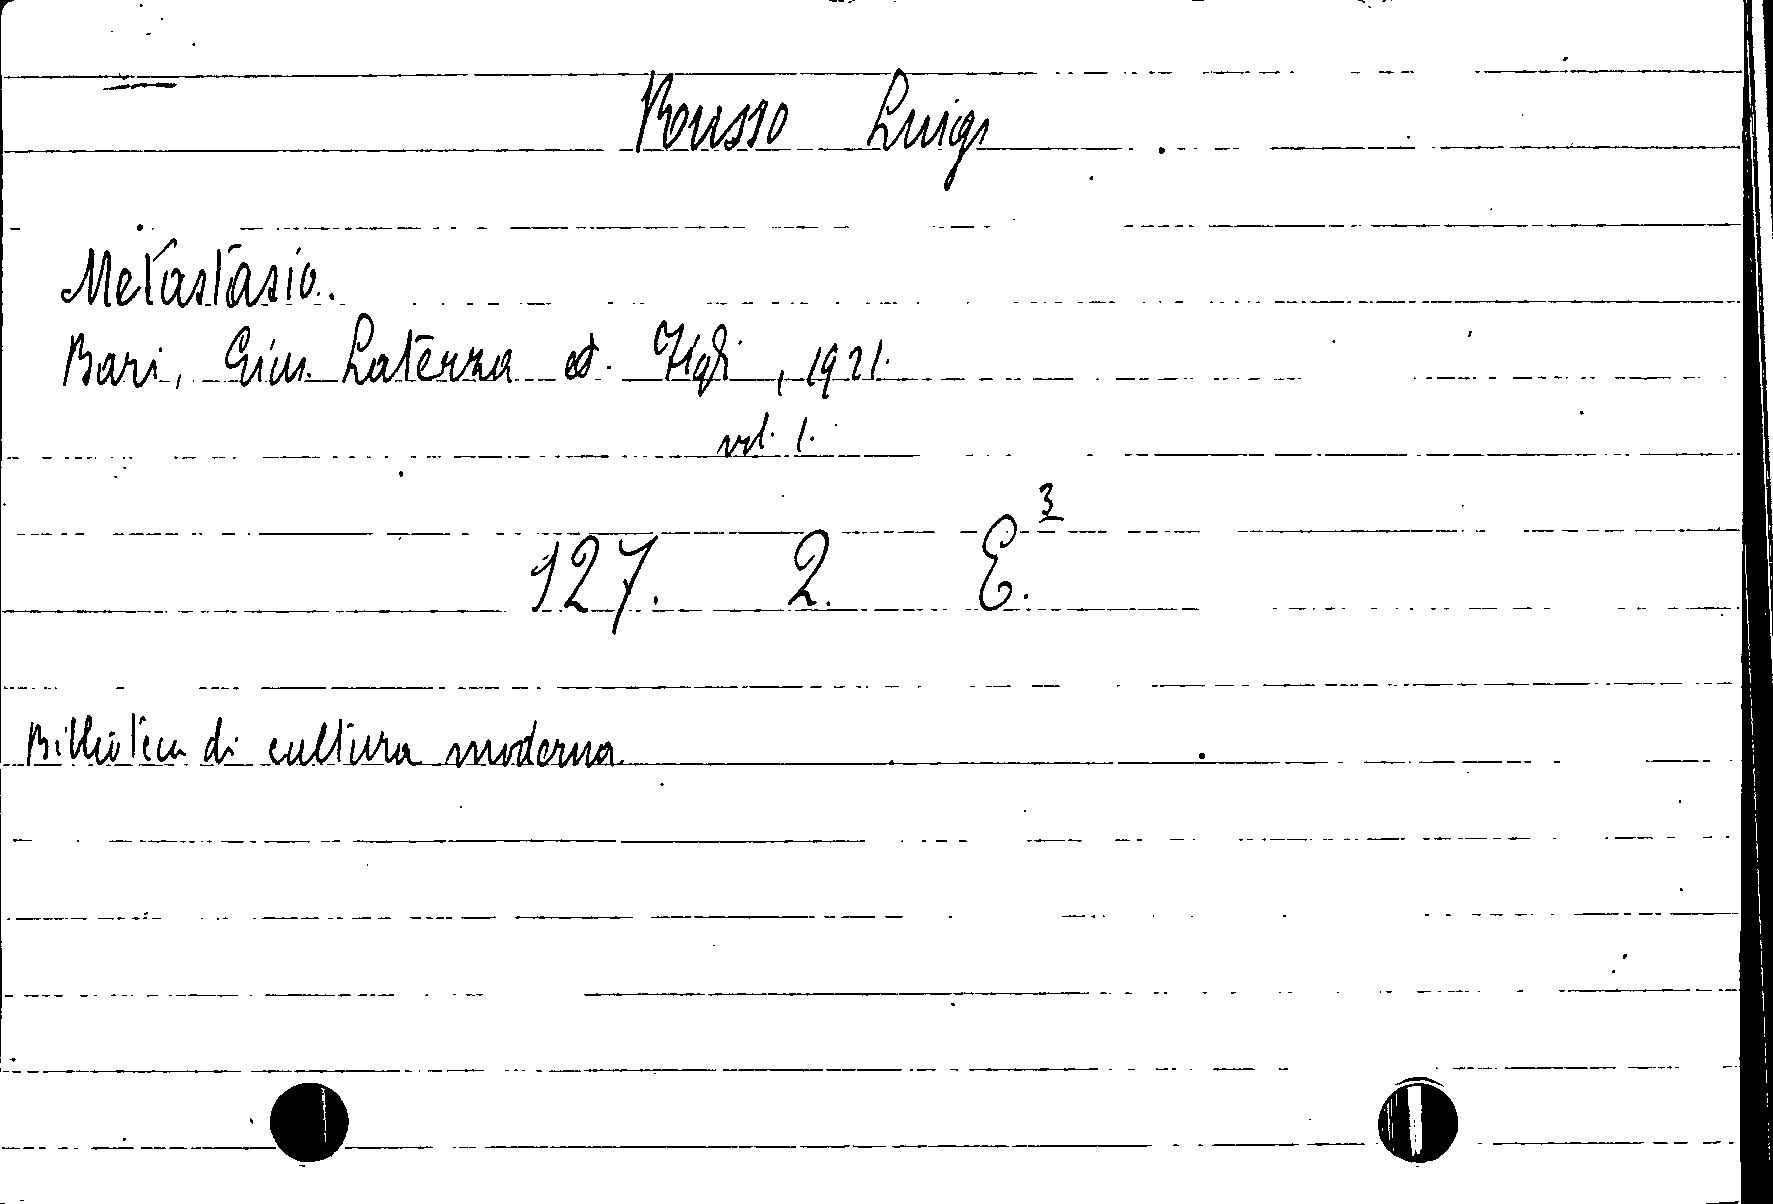 Russo Luigi
Metastasio.
Bari, Gius. Laterza et. Figli, 1921.
vol. 1.
127. 2. E.³
Biblioteca di cultura moderna